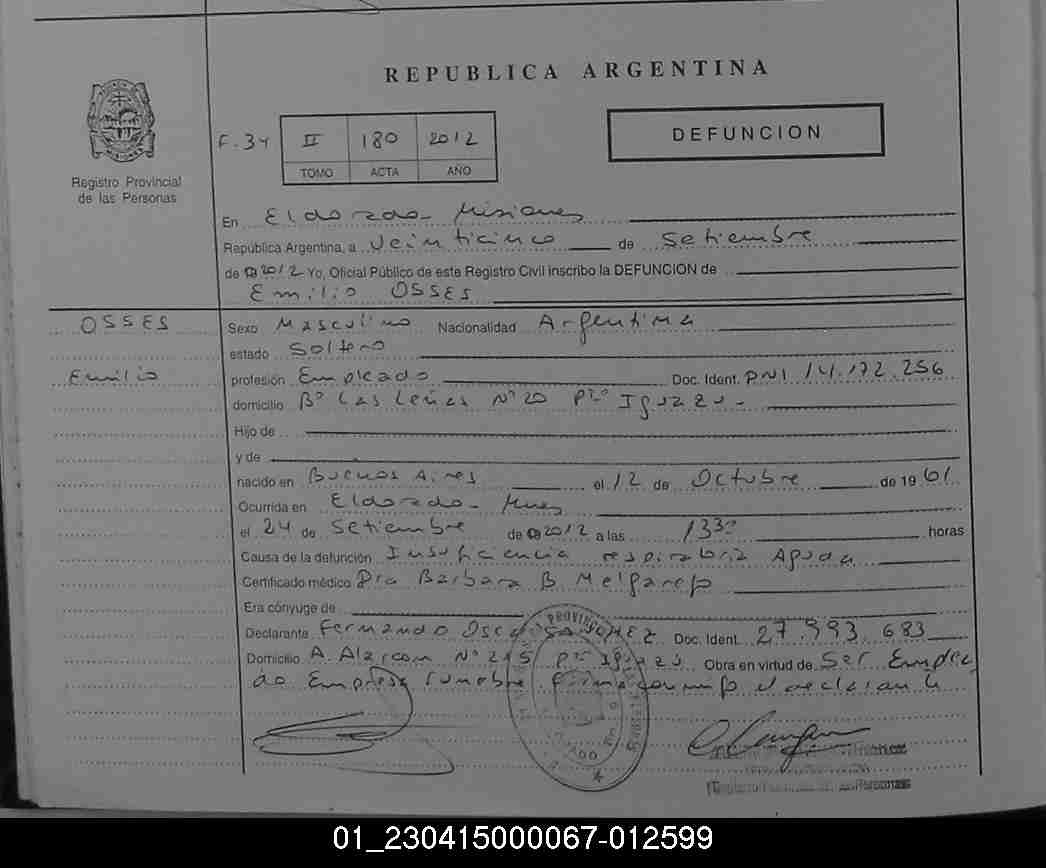 REPUBLICA ARGENTINA
DEFUNCION
F. 34 II 180 2012
TOMO ACTA AÑO
Registro Provincial
de las Personas
En Eldorado - Misiones
República Argentina, a Veinticinco de Setiembre
de 2012 Yo, Oficial Público de este Registro Civil inscribo la DEFUNCION de
Emilio OSSES
OSSES
Emilio
Sexo Masculino Nacionalidad Argentina
estado Soltero
profesión Empleado Doc. Ident. DNI 14.172.256
domicilio Bº Las Leñas Nº 20 Pto Iguazu -
Hijo de
y de
nacido en Buenos Aires el 12 de Octubre de 1961
Ocurrida en Eldorado - Mnes
el 24 de Setiembre de 2012 a las 1330 horas
Causa de la defunción Insuficiencia respiratoria Aguda
Certificado médico Dra Barbara B. Melgarejo
Era cónyuge de
Declarante Fernando Oscar Doc. Ident. 27.993.683
Domicilio A. Alarcon Nº 245 Pto Iguazú Obra en virtud de Ser Emplea
do Empresa Funebre Firma conmigo el declarante
PROVINCIA
01_230415000067-012599